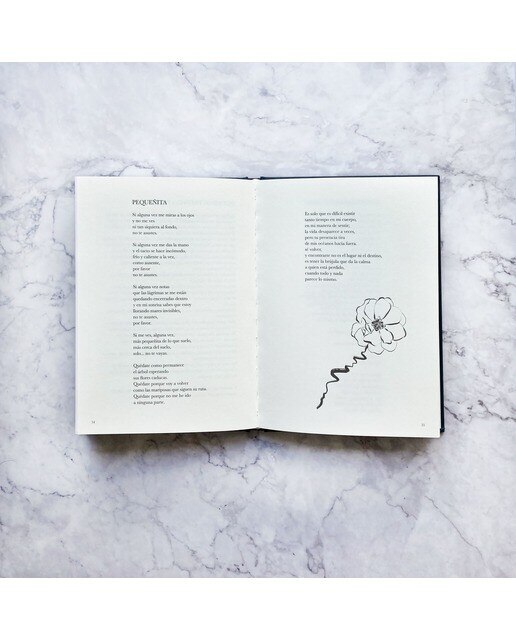 PEQUEÑITA
Si alguna vez me miras a los ojos
y no me ves
ni tan siquiera al fondo,
no te asustes.
Si alguna vez me das la mano
y el tacto se hace incómodo,
frío y caliente a la vez,
como ausente,
por favor
no te asustes.
Si alguna vez notas
que las lágrimas se me están
quedando encerradas dentro
y en mi sonrisa sabes que estoy
llorando mares invisibles,
no te asustes,
por favor.
Si me ves, alguna vez,
más pequeñita de lo que suelo,
más cerca del suelo,
solo... no te vayas.
Quédate como permanece
el árbol esperando
sus flores caducas.
Quédate porque voy a volver
como las mariposas que siguen su ruta.
Quédate porque no me he ido
a ninguna parte.
34
Es solo que es difícil existir
tanto tiempo en mi cuerpo,
en mi manera de sentir,
la vida desaparece a veces,
pero tu presencia tira
de mis océanos hacia fuera,
al volver,
y encontrarte no es el lugar ni el destino,
es tener la brújula que da la calma
a quien está perdido,
cuando todo y nada
parece lo mismo.
35